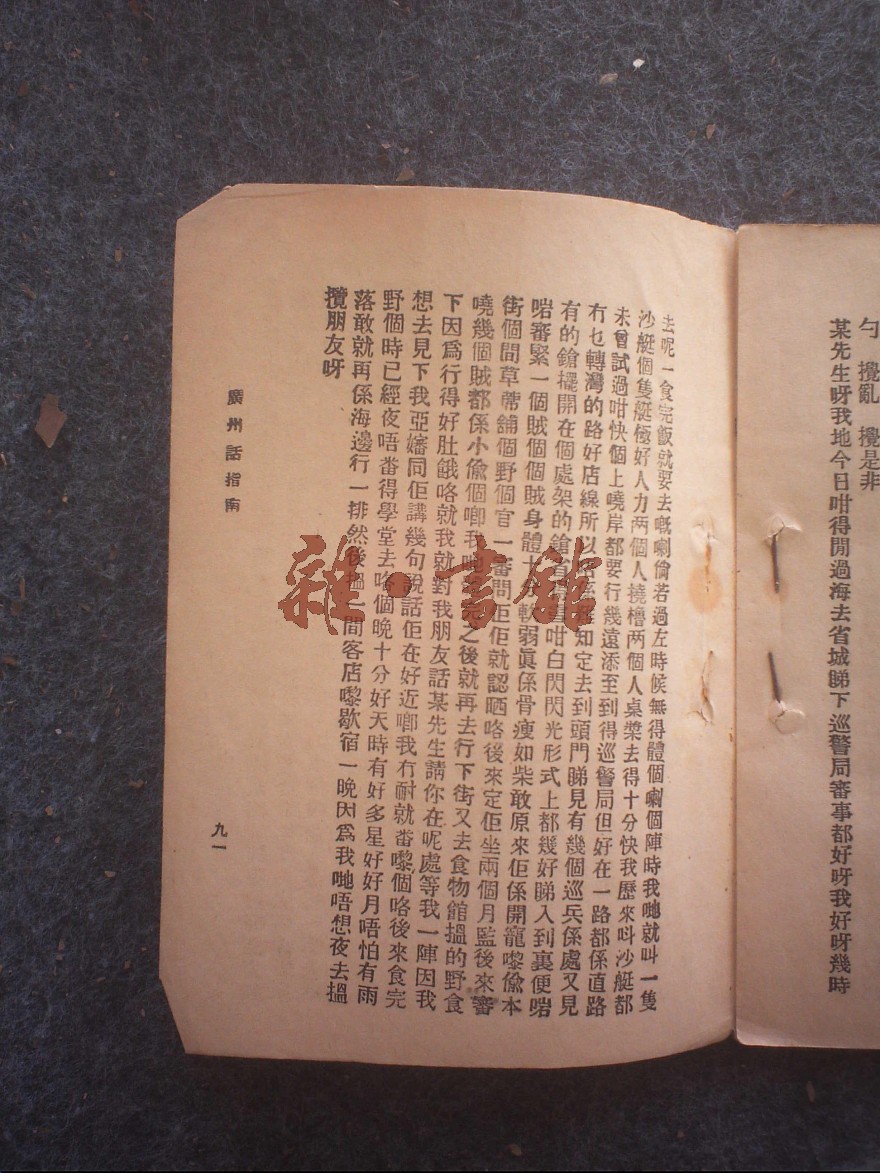 勻　攪亂　攪是非
某先生呀我地今日咁得閒過海去省城睇下巡警局審事都好呀我好呀幾時
去呢一食完飯就要去嘅喇倘若過左時候無得體個喇個陣時我哋就叫一隻
沙艇個隻艇極好人力兩個人撓櫓兩個人桌槳去得十分快我歷來叫沙艇都
未曾試過咁快個上嘵岸都要行幾遠添至到得巡警局但好在一路都係直路
冇乜轉灣的路好店線所以唔係難知定去到頭門睇見有幾個巡兵係處又見
有的鎗擺開在個處架的鎗咁白閃閃光形式上都幾好睇入到裏便啱
啱審緊一個賊個個賊身體十分軟弱眞係骨瘦如柴敢原來佢係開籠嚟偸本
街個間草蓆舖個野個官一審問佢佢就認晒咯後來定佢坐兩個月監後來審
嘵幾個賊都係小偸個啣我哋完之後就再去行下街又去食物館搵的野食
下因爲行得好肚餓咯就我就對我朋友話某先生請你在呢處等我一陣因我
想去見下我亞嬸同佢講幾句說話佢在好近啣我冇耐就番嚟個咯後來食完
野個時已經夜唔番得學堂去咯個晚十分好天時有好多星好好月唔怕有雨
落敢就再係海邊行一排然後搵一間客店嚟歇宿一晚因爲我哋唔想夜去搵
攬朋友呀
廣州話指南
九一
雜·書館